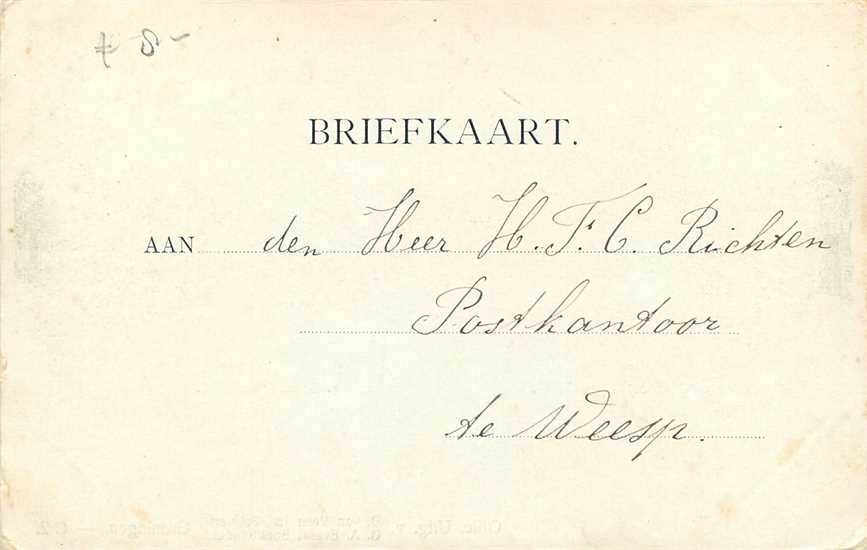 f 8-
BRIEFKAART.
AAN den Heer H. F. C. Richten
Postkantoor
te Weesp.